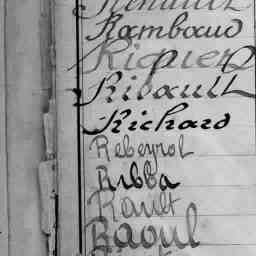 Renault
Rambaud
Riquier
Ribault
Richard
Rebeyrol
Ribba
Rault
Raoul